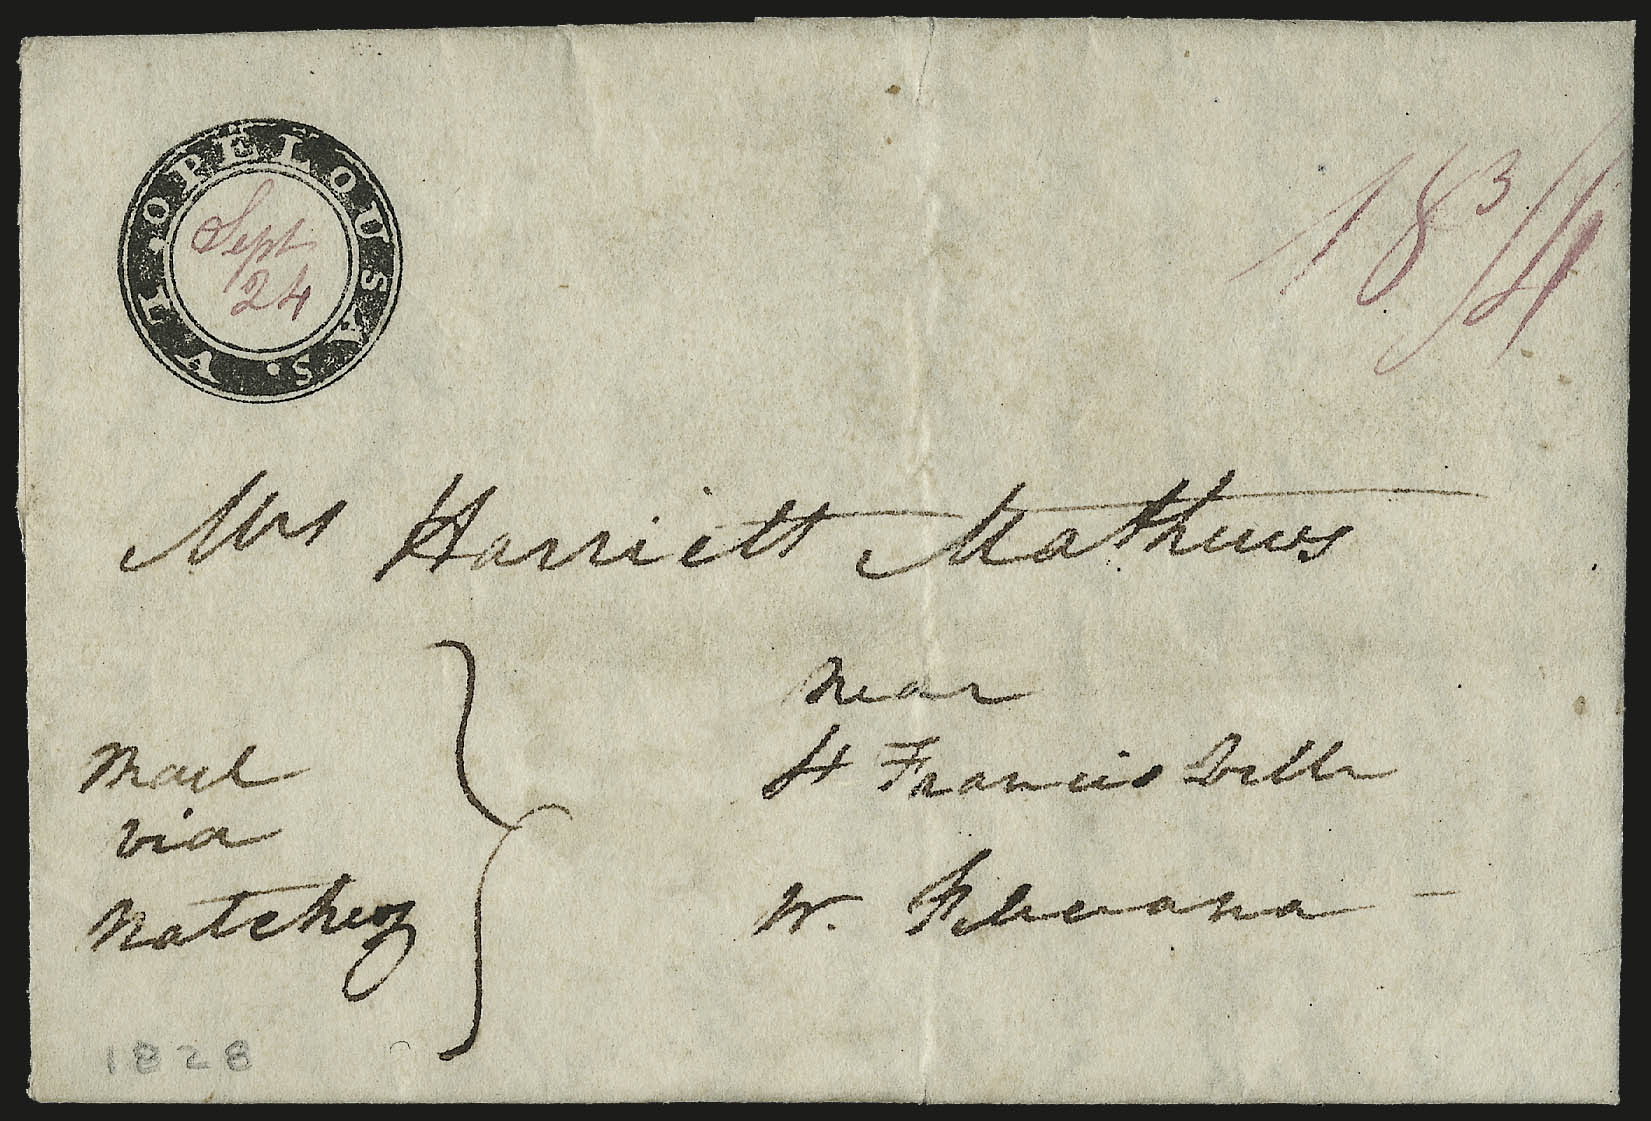 OPELOUSAS. LA.
Sept
24
18 3/4
Mrs Harriett Mathews
Near
St Francis Ville
W. Feleciana
Mail
via
Natchez
1828